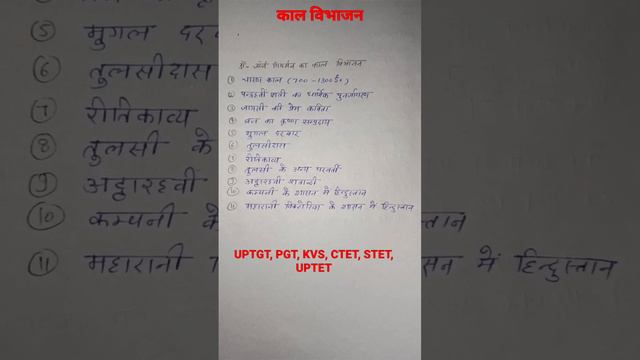 काल विभाजन
डॉ- जॉर्ज ग्रियर्सन का काल विभाजन
① चारण काल (700-1300 ई०)
② पन्द्रहवी शती का धार्मिक पुनर्जागरण
③ जायसी की प्रेम कविता
④ ब्रज का कृष्ण सम्प्रदाय
⑤ मुगल दरबार
⑥ तुलसीदास
⑦ रीतिकाव्य
⑧ तुलसी के अन्य परवर्ती
⑨ अट्ठारहवी शताब्दी
⑩ कम्पनी के शासन में हिन्दुस्तान
⑪ महारानी विक्टोरिया के शासन में हिन्दुस्तान
UPTGT, PGT, KVS, CTET, STET,
UPTET
⑤ मुगल दर
⑥ तुलसीदास
⑦ रीतिकाव्य
⑧ तुलसी के
⑨ अट्ठारहवी
⑩ कम्पनी के
⑪ महारानी
तान
सन में हिन्दुस्तान